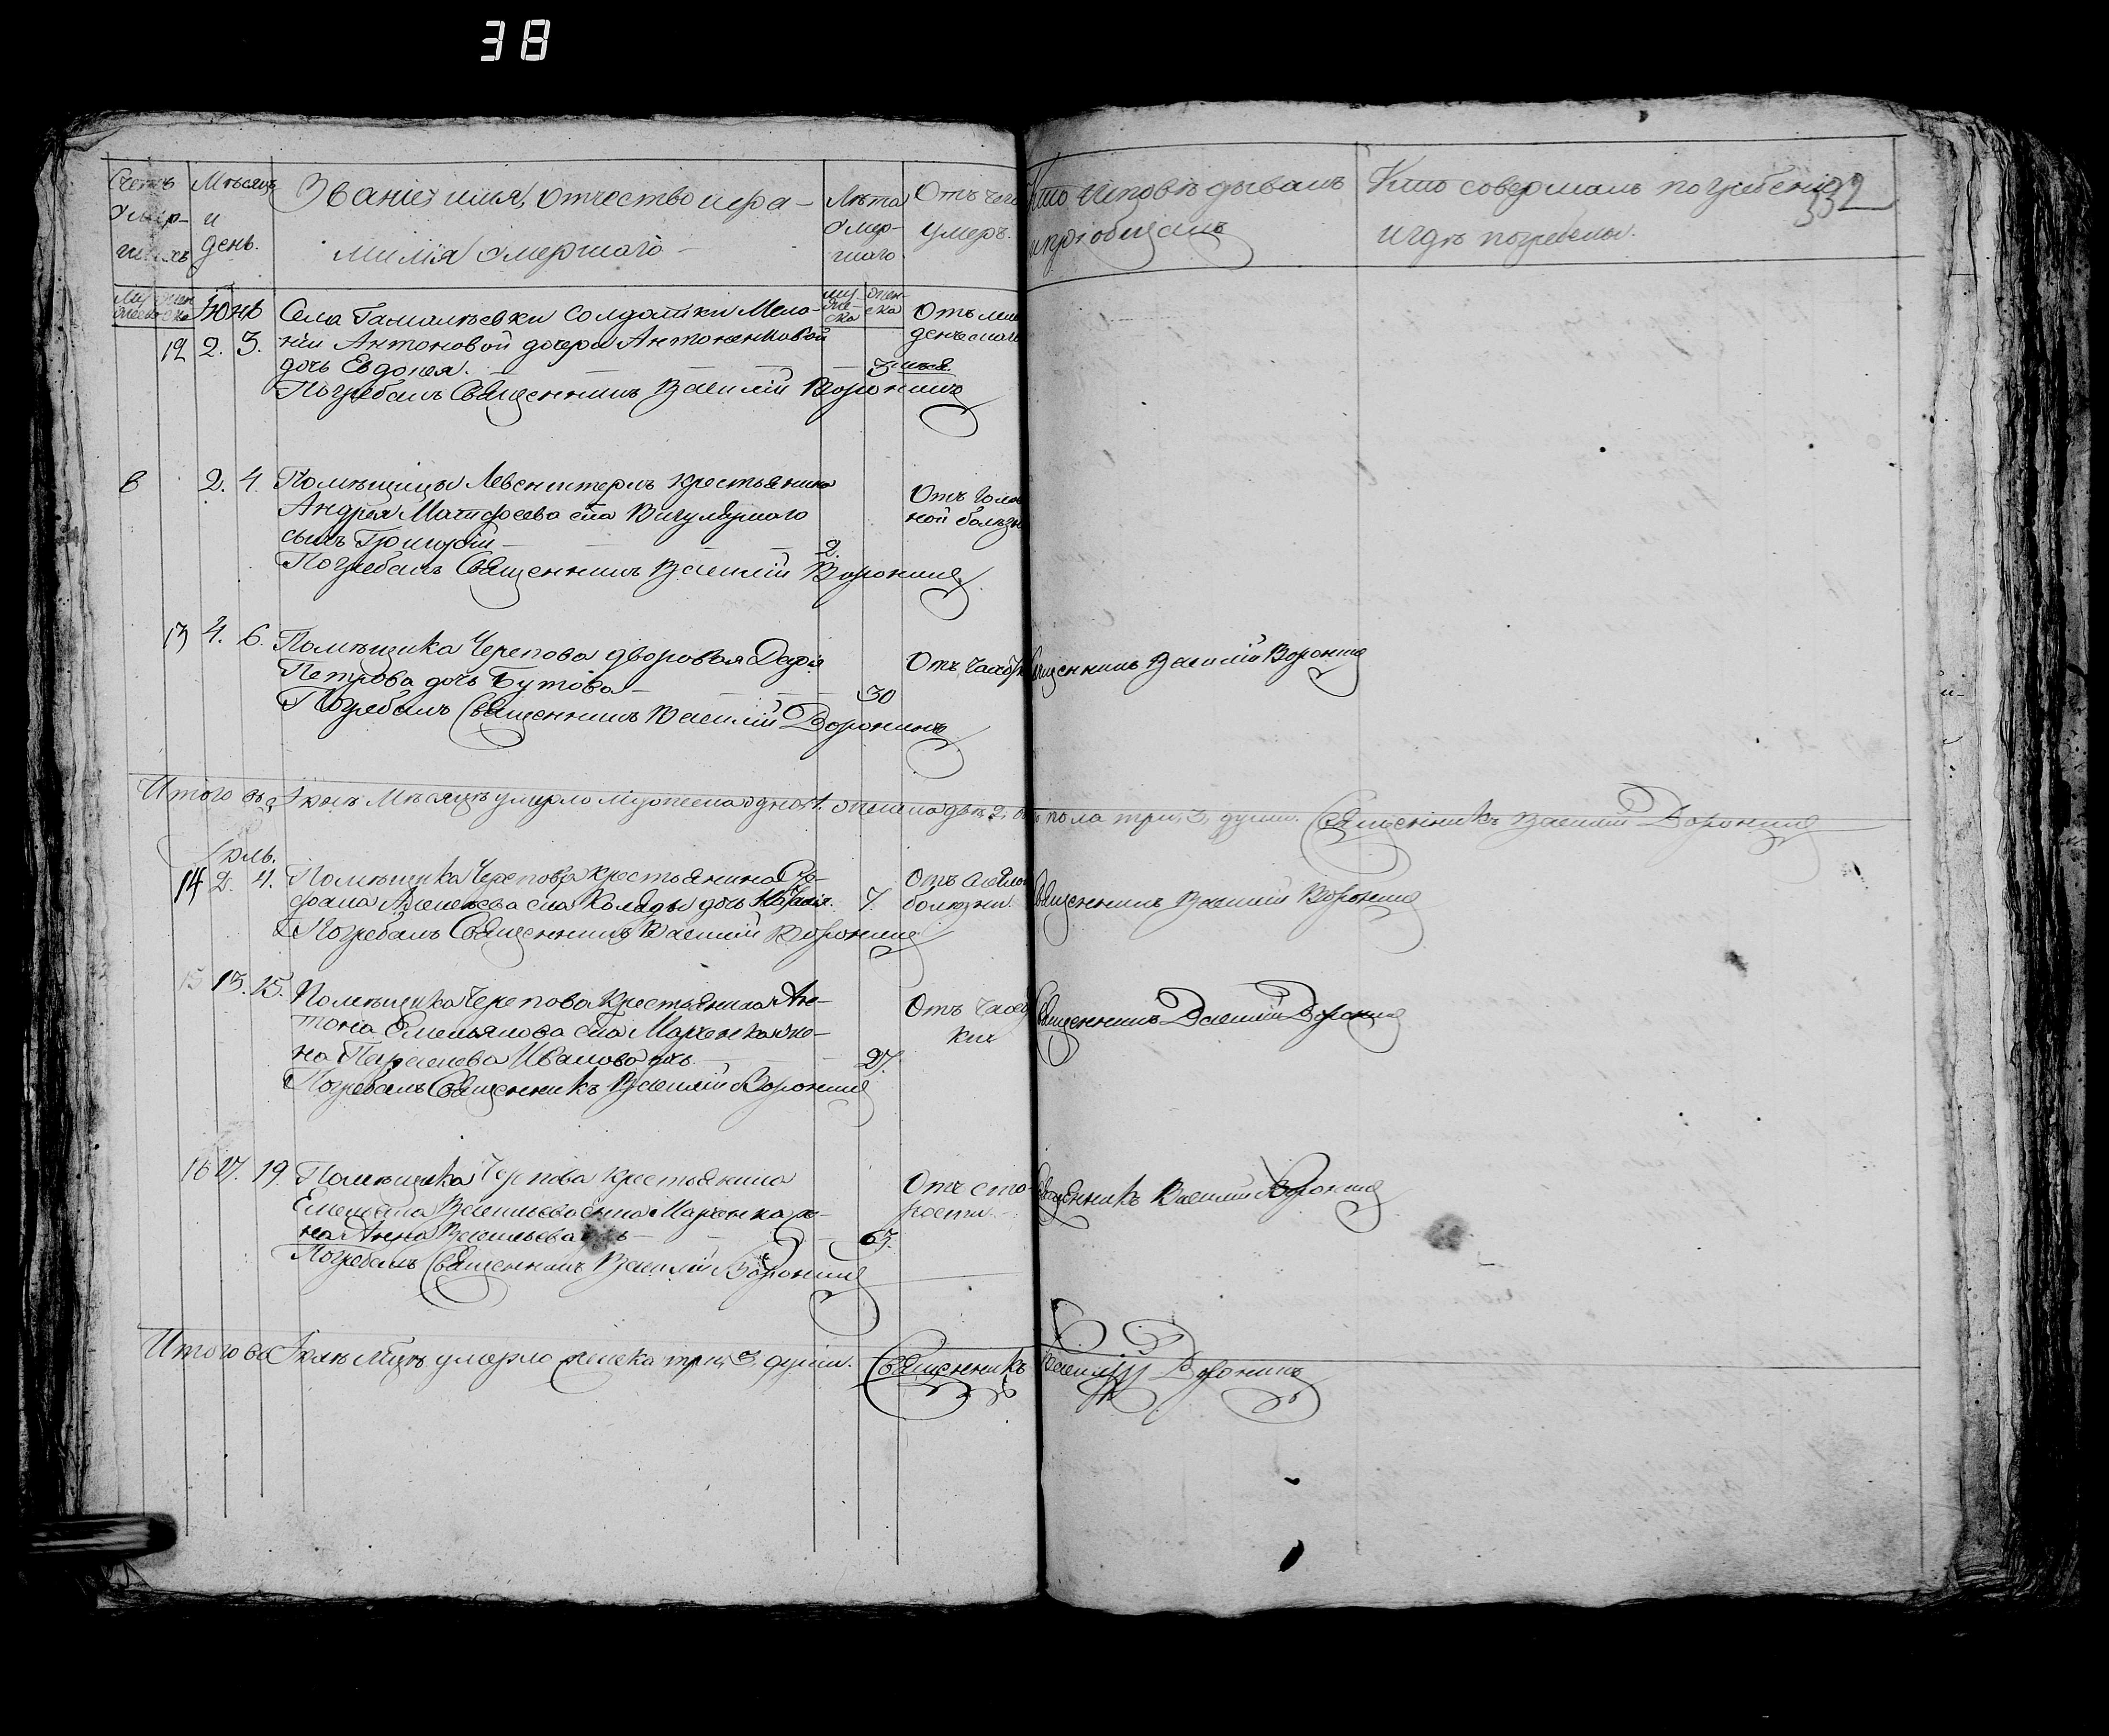 38
Счетъ умер- шихъ
Мѣсяцъ и день.
Званіе, имя, отчество и фа-
милія умершаго
Лѣта умер- шаго
Отъ чего умеръ.
Кто исповѣдывалъ
и пріобщалъ
Кто совершалъ погребеніе
и гдѣ погребены.
332
Іюнь
муже- ска
жен- ска
12 2. 3. Села Гамалѣевки солдатки Мела-
ніи Антоновой дочери Антоненковой
дочь Евдокея. 3
Отъ мла
денческой
Погребалъ Священникъ Василій Воронинъ
8 2. 4. Помѣщицы Левенштернъ крестьянина
Андрея Матфеева сна
сынъ Григорій 2.
Отъ голов
ной болѣзн
Погребалъ Священникъ Василій Воронинъ
13 4. 6. Помѣщика Черепова дворовая Дарія
Петрова дочь Бутова 30
Отъ чахот
Священникъ Василій Воронинъ
Погребалъ Священникъ Василій Воронинъ
Итого въ Іюнѣ Мѣсяцѣ умерло мужеска одно 1. женска двѣ 2. пола три, 3, души. Священникъ Василій Воронинъ
Іюль.
14 2. 4. Помѣщика Черепова крестьянина
Алексѣева сна Коляды дочь 7.
Отъ
болѣзни.
Священникъ Василій Воронинъ
Погребалъ Священникъ Василій Воронинъ
15 13. 15. Помѣщика Черепова крестьянина Ан-
тона Емельянова сна Марченка же-
на Параскева Иванова дчь 27.
Отъ чахот
ки
Священникъ Василій Воронинъ
Погребалъ Священникъ Василій Воронинъ
16 17. 19. Помѣщика Черепова крестьянина
Емельяна Васильева сына Марченка же-
на Анна Васильева 63.
Отъ ста-
рости.
Священникъ Василій Воронинъ
Погребалъ Священникъ Василій Воронинъ
Итого въ Іюлѣ мцѣ умерло женска три, 3, души. Священникъ Василій Воронинъ